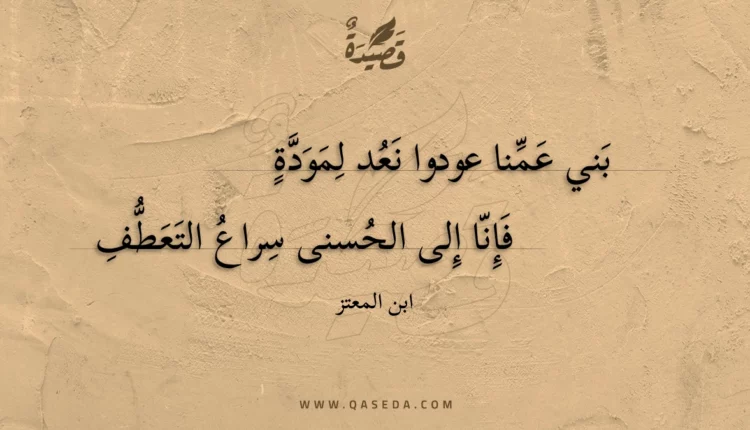 قَصِيدَةٌ
بَني عَمِّنا عودوا نَعُد لِمَوَدَّةٍ
فَإِنّا إِلى الحُسنى سِراعُ التَعَطُّفِ
ابن المعتز
WWW.QASEDA.COM